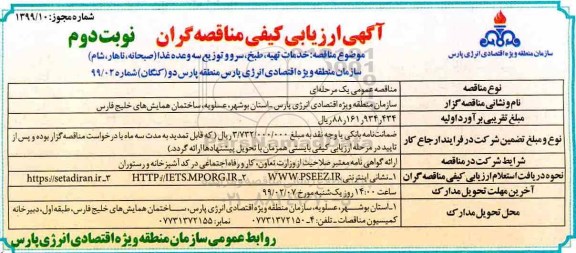 شماره مجوز: ۱۳۹۹/۱۰
آگهی ارزیابی کیفی مناقصه گران
نوبت دوم
سازمان منطقه ویژه اقتصادی انرژی پارس
موضوع مناقصه: خدمات تهیه، طبخ، سرو و توزیع سه وعده غذا (صبحانه، ناهار، شام)
سازمان منطقه ویژه اقتصادی انرژی پارس منطقه پارس دو (کنگان) شماره ۹۹/۰۲
نوع مناقصه
مناقصه عمومی یک مرحله‌ای
نام و نشانی مناقصه گزار
سازمان منطقه ویژه اقتصادی انرژی پارس ـ استان بوشهر، عسلویه، ساختمان همایش‌های خلیج فارس
مبلغ تقریبی برآورد اولیه
۸۸٫۱۶۱٫۹۳۴٫۴۳۴ ریال
نوع و مبلغ تضمین شرکت در فرایند ارجاع کار
ضمانت‌نامه بانکی یا وجه نقد به مبلغ ۳/۷۳۲/۰۰۰/۰۰۰ ریال (که قابل تمدید به مدت سه ماه با درخواست مناقصه گزار بوده و پس از
تایید در مرحله ارزیابی کیفی بایستی همزمان با تحویل پیشنهادها ارائه گردد.)
شرایط شرکت در مناقصه
ارائه گواهی نامه معتبر صلاحیت از وزارت تعاون، کار و رفاه اجتماعی در کد آشپزخانه و رستوران
نحوه دریافت استعلام ارزیابی کیفی مناقصه گران
۱ـ نشانی اینترنتی WWW.PSEEZ.IR ۲ـ HTTP://IETS.MPORG.IR ۳ـ https://setadiran.ir
آخرین مهلت تحویل مدارک
ساعت ۱۴:۰۰ روز یکشنبه مورخ ۹۹/۰۲/۰۷
محل تحویل مدارک
۱ـ استان بوشهر، عسلویه، سازمان منطقه ویژه اقتصادی انرژی پارس، ساختمان همایش‌های خلیج فارس، طبقه اول، دبیرخانه
کمیسیون مناقصات ـ تلفن: ۴ـ۰۷۷۳۱۳۷۲۱۵۰ نمابر: ۰۷۷۳۱۳۷۲۱۵۵
روابط عمومی سازمان منطقه ویژه اقتصادی انرژی پارس